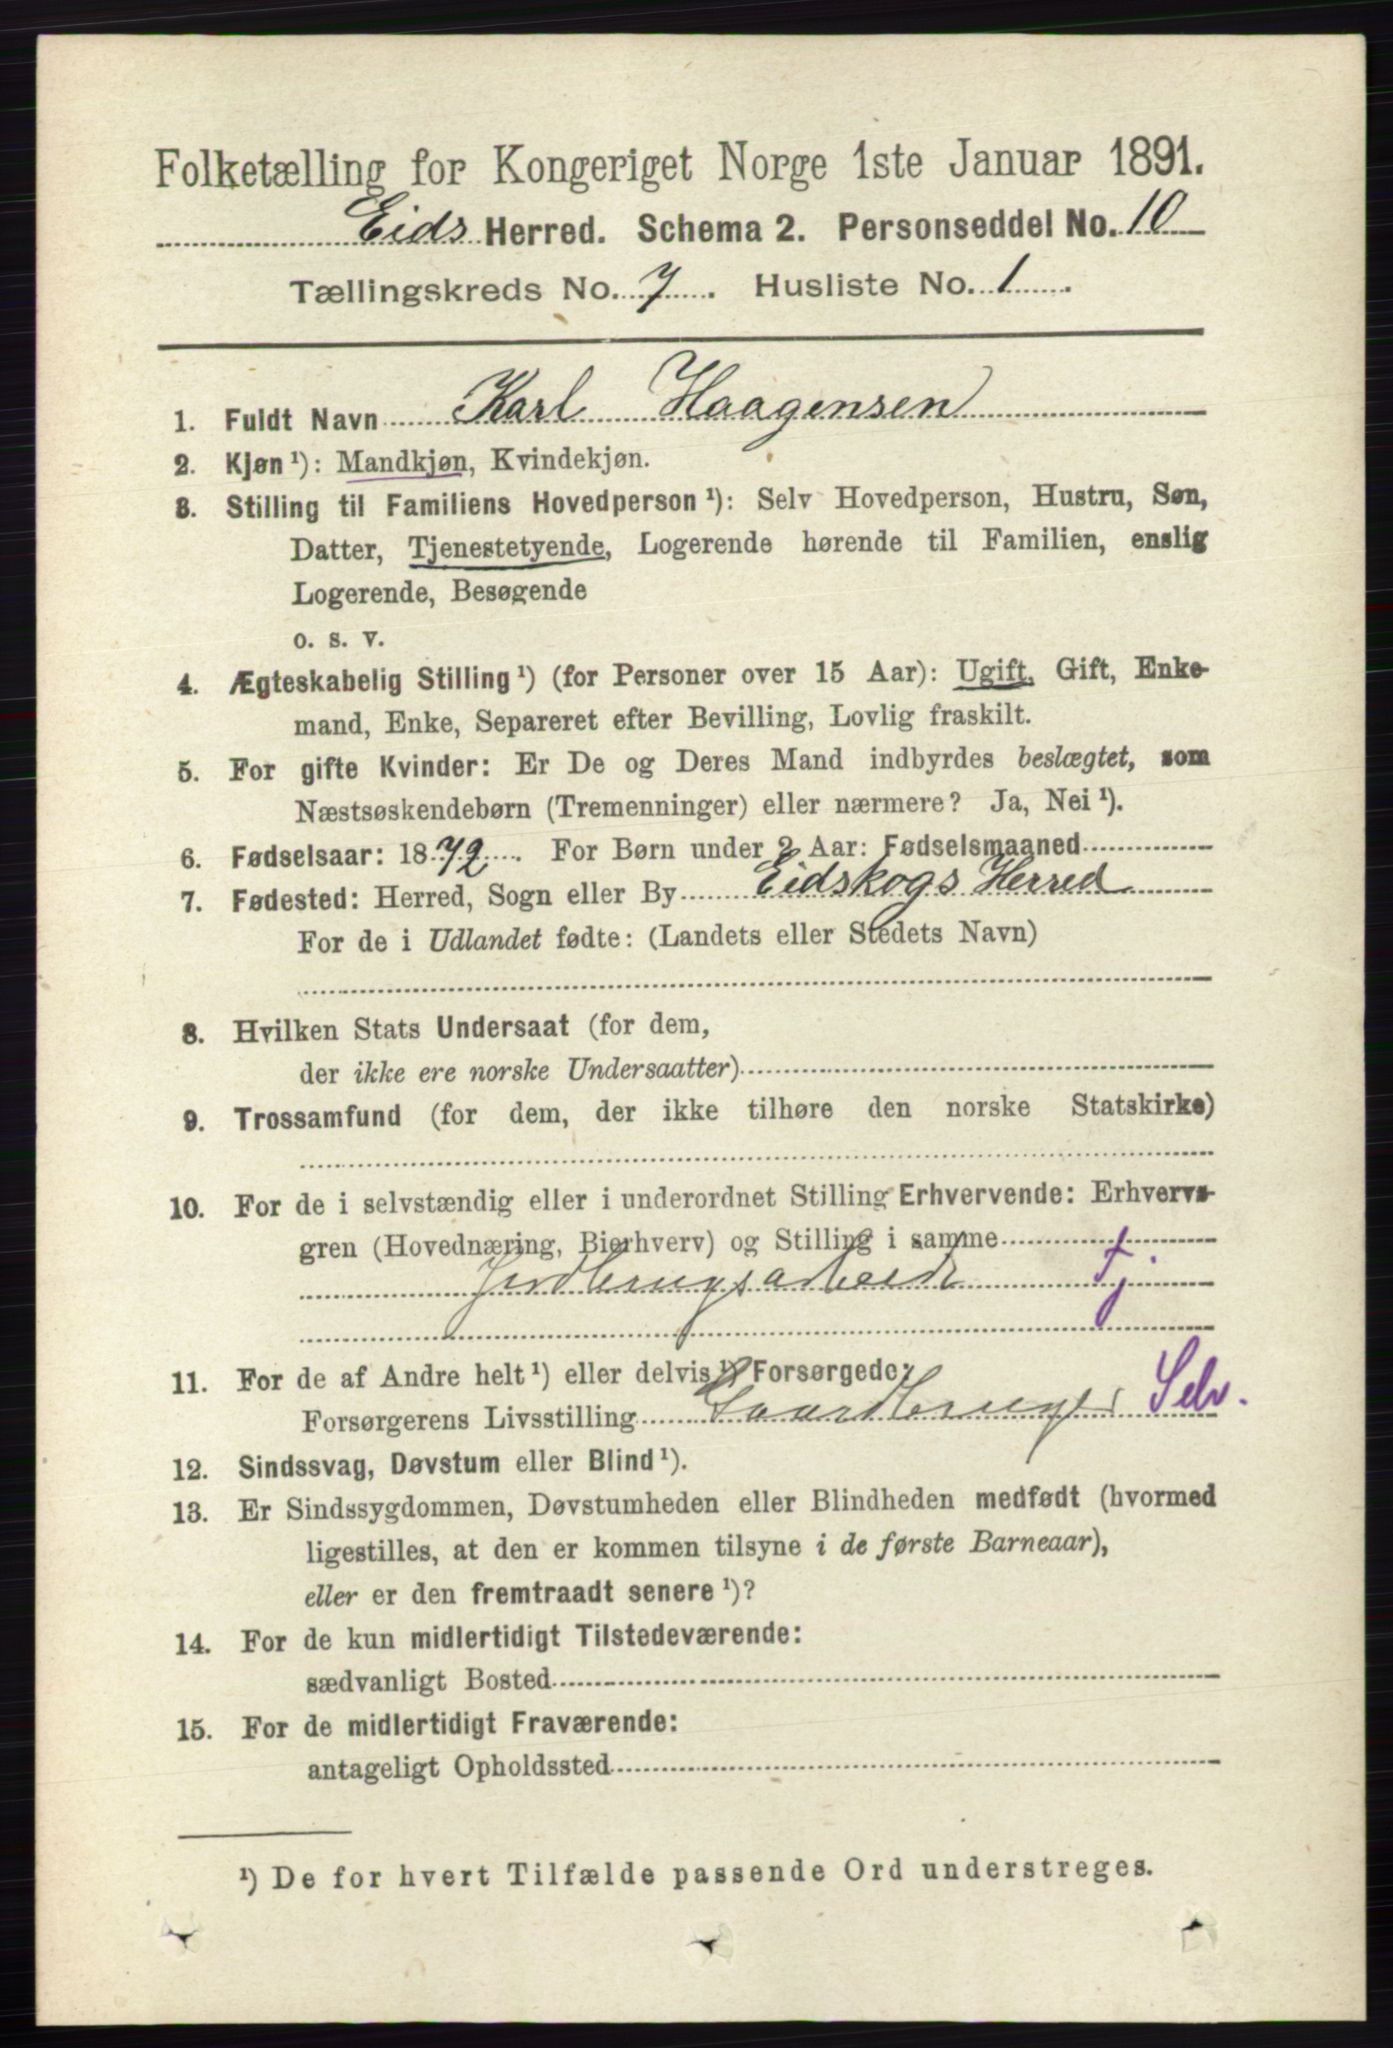 Folketælling for Kongeriget Norge 1ste Januar 1891.
Eids Herred. Schema 2. Personseddel No. 10
Tællingskreds No. 7. Husliste No. 1.
1. Fuldt Navn Karl Haagensen
2. Kjøn ¹): Mandkjøn, Kvindekjøn.
3. Stilling til Familiens Hovedperson ¹): Selv Hovedperson, Hustru, Søn,
Datter, Tjenestetyende, Logerende hørende til Familien, enslig
Logerende, Besøgende
o. s. v.
4. Ægteskabelig Stilling ¹) (for Personer over 15 Aar): Ugift, Gift, Enke-
mand, Enke, Separeret efter Bevilling, Lovlig fraskilt.
5. For gifte Kvinder: Er De og Deres Mand indbyrdes beslægtet, som
Næstsøskendebørn (Tremenninger) eller nærmere? Ja, Nei ¹).
6. Fødselsaar: 1872. For Børn under 2 Aar: Fødselsmaaned
7. Fødested: Herred, Sogn eller By Eidskogs Herred
For de i Udlandet fødte: (Landets eller Stedets Navn)
8. Hvilken Stats Undersaat (for dem,
der ikke ere norske Undersaatter)
9. Trossamfund (for dem, der ikke tilhøre den norske Statskirke)
10. For de i selvstændig eller i underordnet Stilling Erhvervende: Erhvervs-
gren (Hovednæring, Bierhverv) og Stilling i samme
Jordbrugsarbeide tj.
11. For de af Andre helt ¹) eller delvis ¹) Forsørgede:
Forsørgerens Livsstilling Gaardbruger Selv.
12. Sindssvag, Døvstum eller Blind ¹).
13. Er Sindssygdommen, Døvstumheden eller Blindheden medfødt (hvormed
ligestilles, at den er kommen tilsyne i de første Barneaar),
eller er den fremtraadt senere ¹)?
14. For de kun midlertidigt Tilstedeværende:
sædvanligt Bosted
15. For de midlertidigt Fraværende:
antageligt Opholdssted
¹) De for hvert Tilfælde passende Ord understreges.